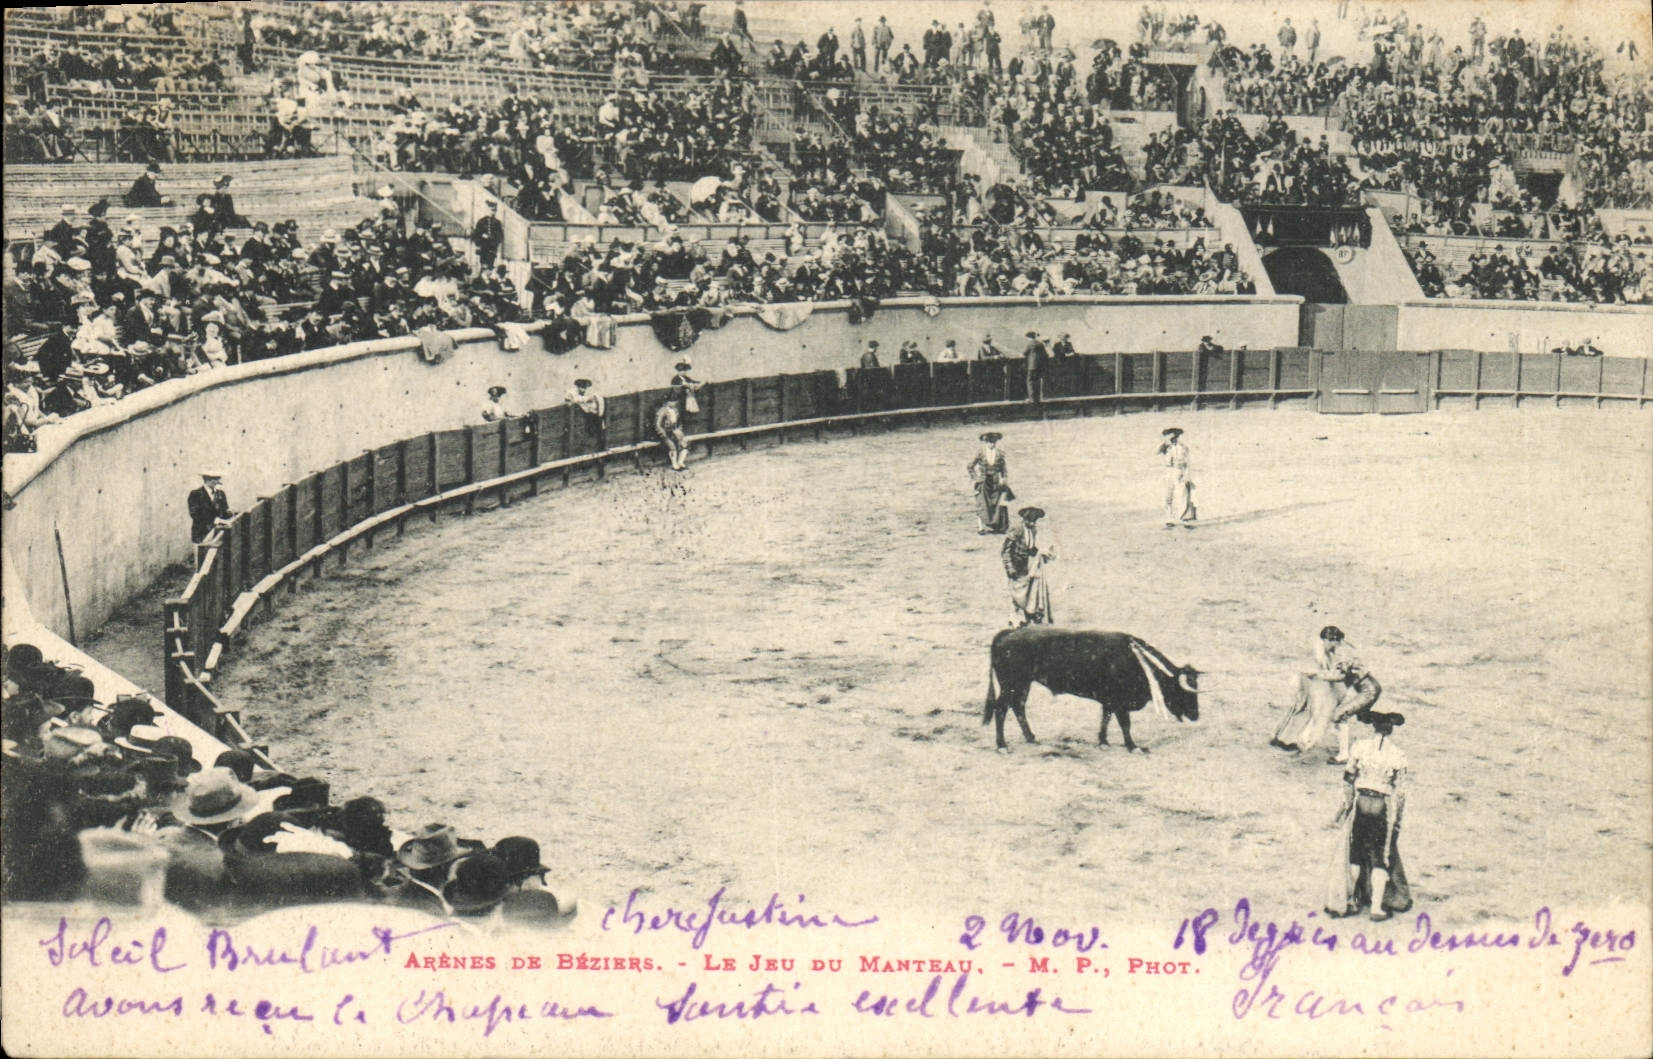 chere Justine 2 Nov. 18 degrés au dessus de zero
Soleil Brulant
ARÈNES DE BÉZIERS. - LE JEU DU MANTEAU. - M. P., PHOT.
avons reçu le Chapeau Santée excellente Français